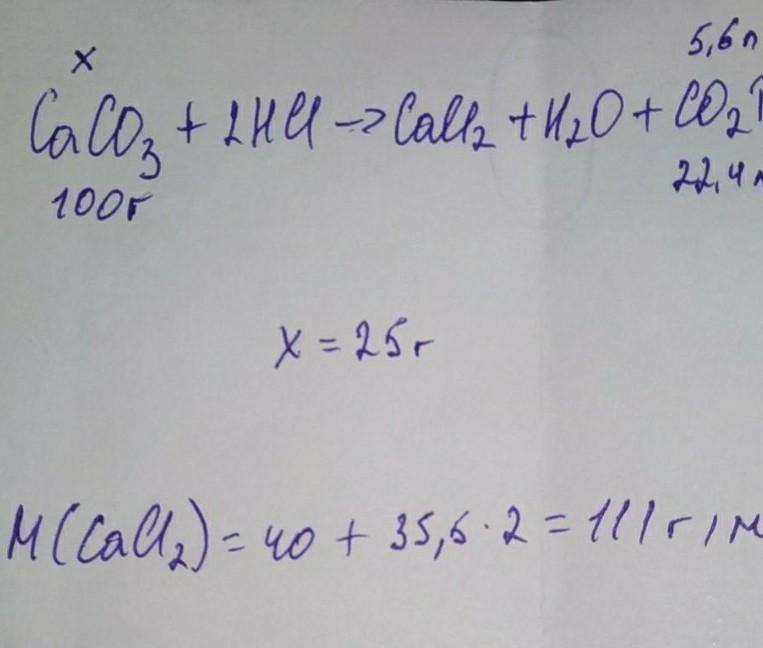 x 5,6л
CaCO₃ + 2HCl → CaCl₂ + H₂O + CO₂↑
100г 22,4л
x = 25г
M(CaCl₂) = 40 + 35,5 · 2 = 111г/м